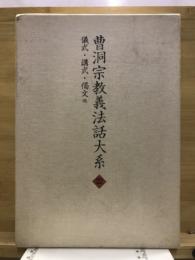 曹洞宗教義法話大系
儀式・講式・偈文他